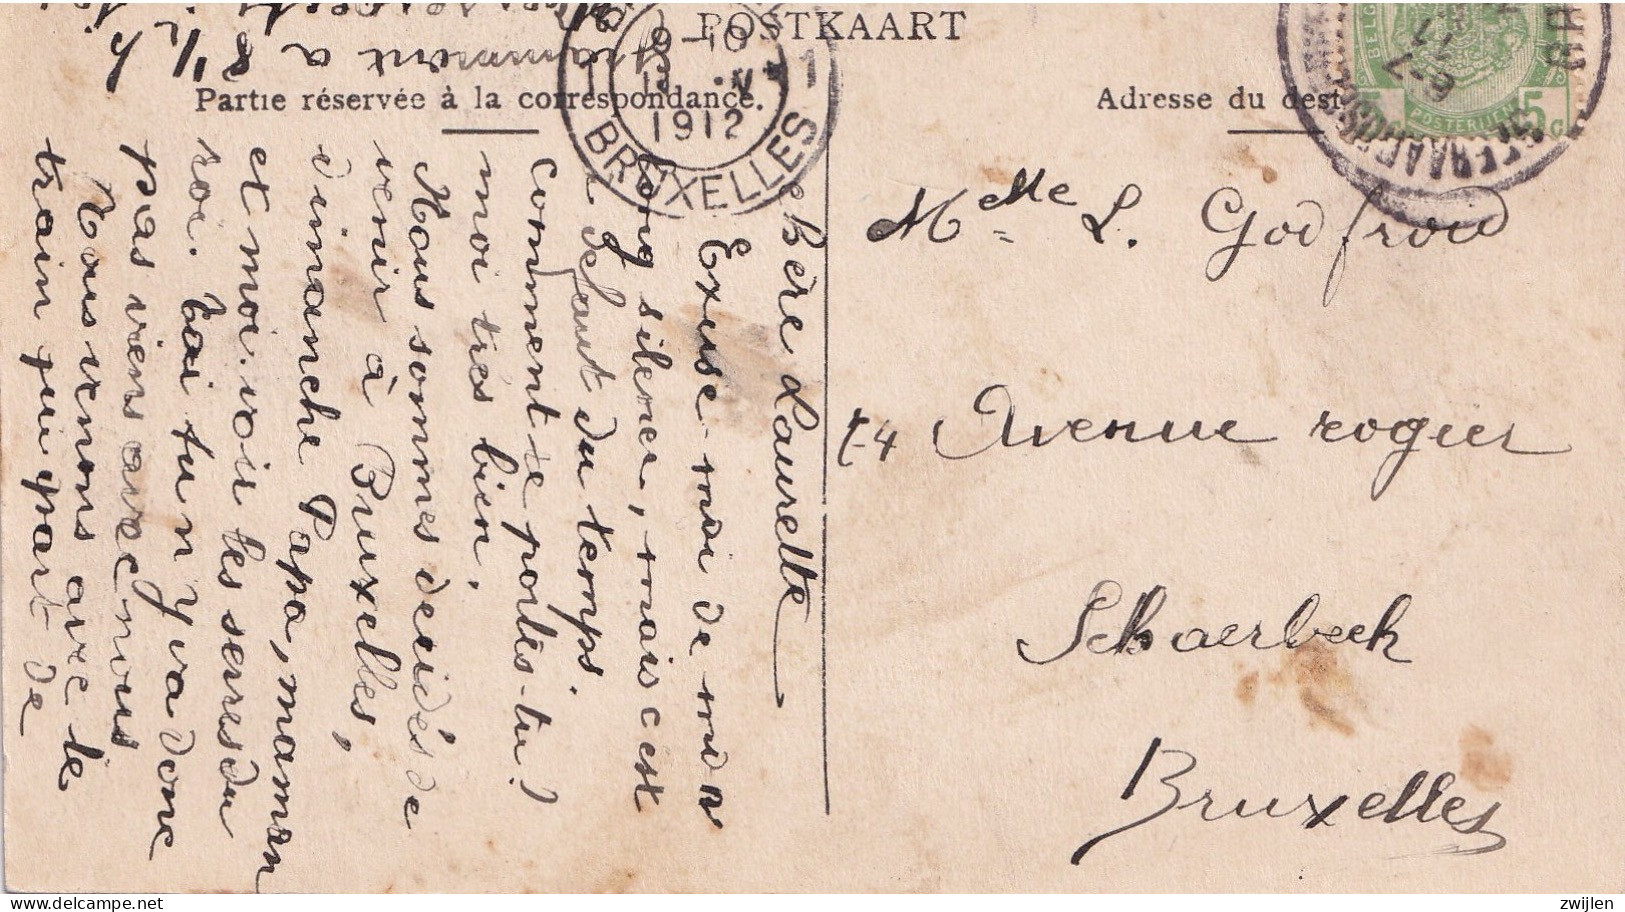 POSTKAART
Partie réservée à la correspondance.
Adresse du dest
BRUXELLES
1912
POSTERIJEN
5 c
Mme L. Godfroid
74 Avenue rogier
Schaerbeek
Bruxelles
Chère Laurette
Excuse-moi de mon
long silence, mais c'est
le défaut du temps.
Comment te portes-tu?
moi très bien,
Nous sommes décidés de
venir à Bruxelles,
dimanche Papa, maman
et moi. voir les serres du
roi. Vai tu n'y va donc
pas viens avec nous
Nous venons avec le
train qui part de
grammont a 8 1/2 h